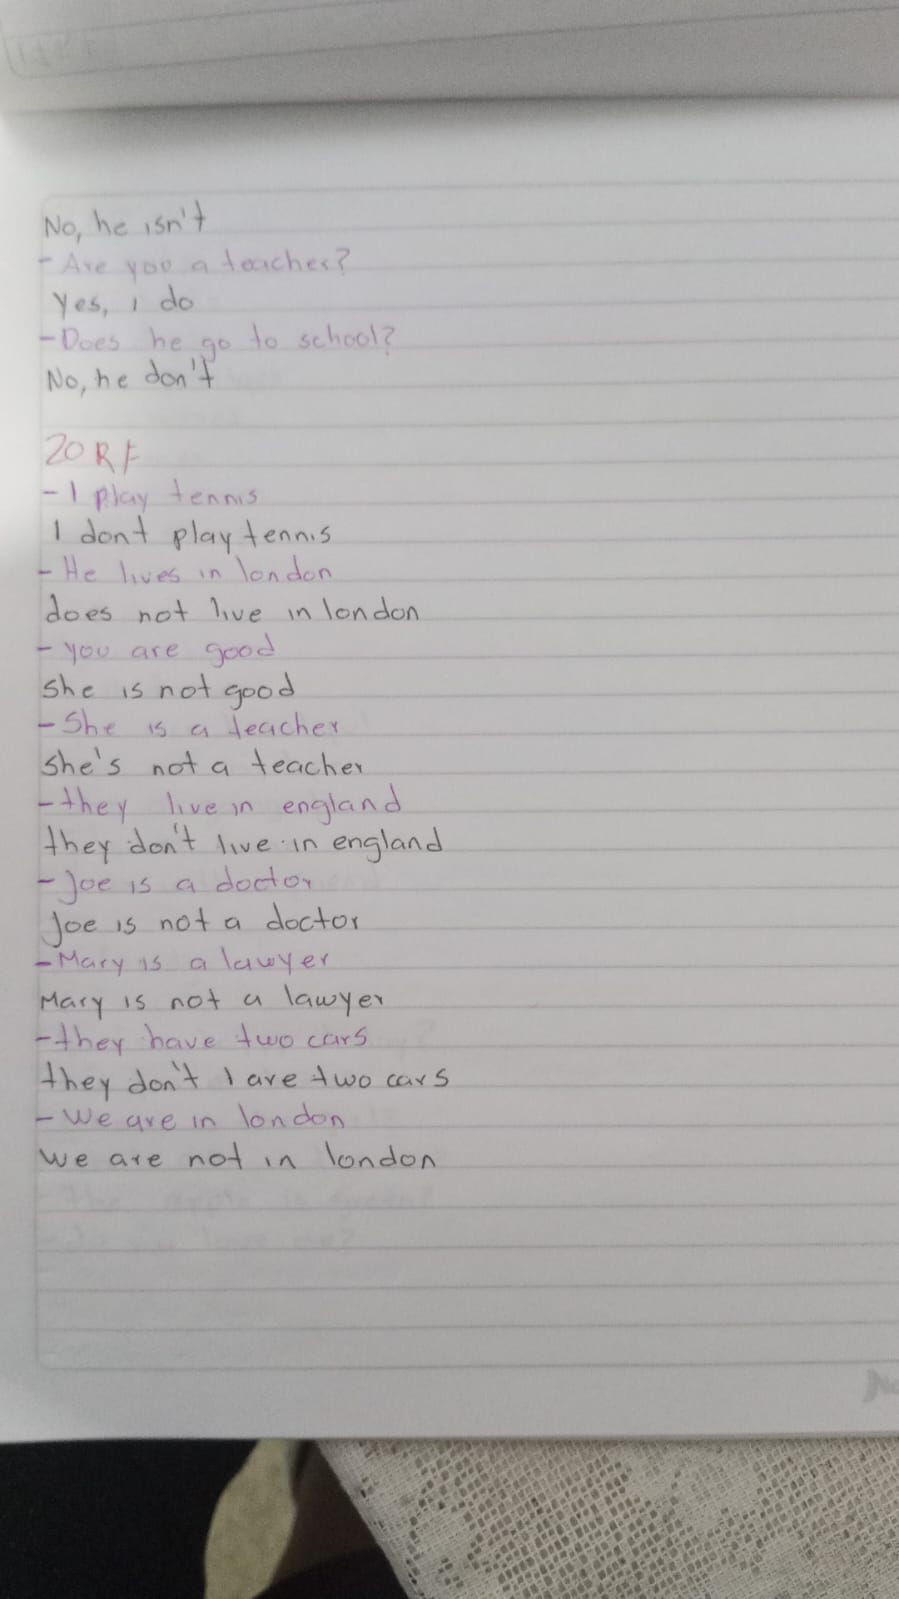 No, he isn't
- Are you a teacher?
Yes, I do
- Does he go to school?
No, he don't
20 R F
- I play tennis
I dont play tennis
- He lives in london
does not live in london
- you are good
she is not good
- She is a teacher
she's not a teacher
- they live in england
they don't live in england
- Joe is a doctor
Joe is not a doctor
- Mary is a lawyer
Mary is not a lawyer
- they have two cars
they don't I are two cars
- We are in london
we are not in london